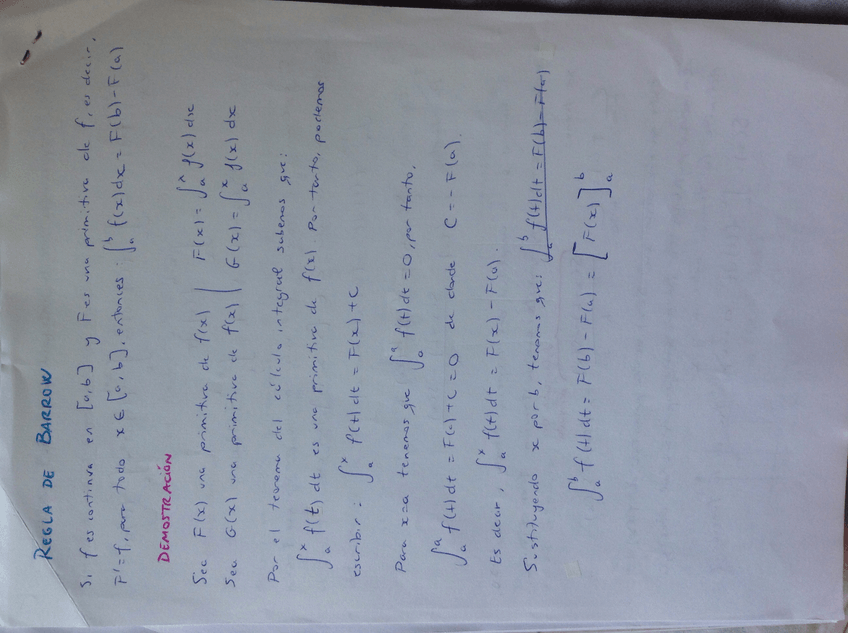 REGLA DE BARROW
Si f es continua en [a,b] y F es una primitiva de f, es decir,
F'=f, para todo x ∈ [a,b], entonces: ∫_a^b f(x)dx = F(b)-F(a)
DEMOSTRACIÓN
Sea F(x) una primitiva de f(x) | F(x) = ∫_a^x f(x) dx
Sea G(x) una primitiva de f(x) | G(x) = ∫_a^x f(x) dx
Por el teorema del cálculo integral sabemos que:
∫_a^x f(t) dt es una primitiva de f(x) Por tanto, podemos
escribir: ∫_a^x f(t) dt = F(x) + C
Para x=a tenemos que ∫_a^a f(t) dt = 0, por tanto,
∫_a^a f(t) dt = F(a) + C = 0 de donde C = - F(a).
Es decir, ∫_a^x f(t) dt = F(x) - F(a).
Sustituyendo x por b, tenemos que: ∫_a^b f(t) dt = F(b) - F(a)
∫_a^b f(t) dt = F(b) - F(a) = [F(x)]_a^b